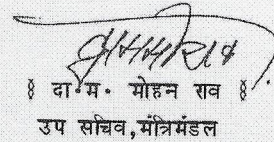 § दा॰म॰ मोहन राव §
उप सचिव,मंत्रिमंडल